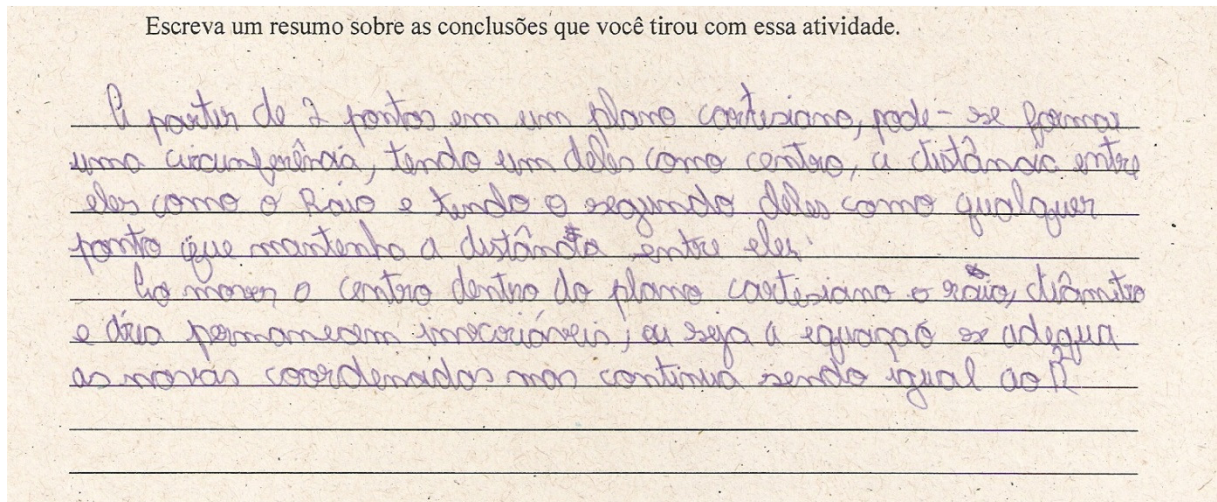 Escreva um resumo sobre as conclusões que você tirou com essa atividade.
A partir de 2 pontos em um plano cartesiano, pode-se formar
uma circunferência, tendo um deles como centro, a distância entre
eles como o Raio e tendo o segundo deles como qualquer
ponto que mantenha a distância entre eles.
Ao mover o centro dentro do plano cartesiano o raio, diâmitro
e área permanecem invariáveis, ou seja a equação se adequa
as novas coordenadas mas continua sendo igual ao R